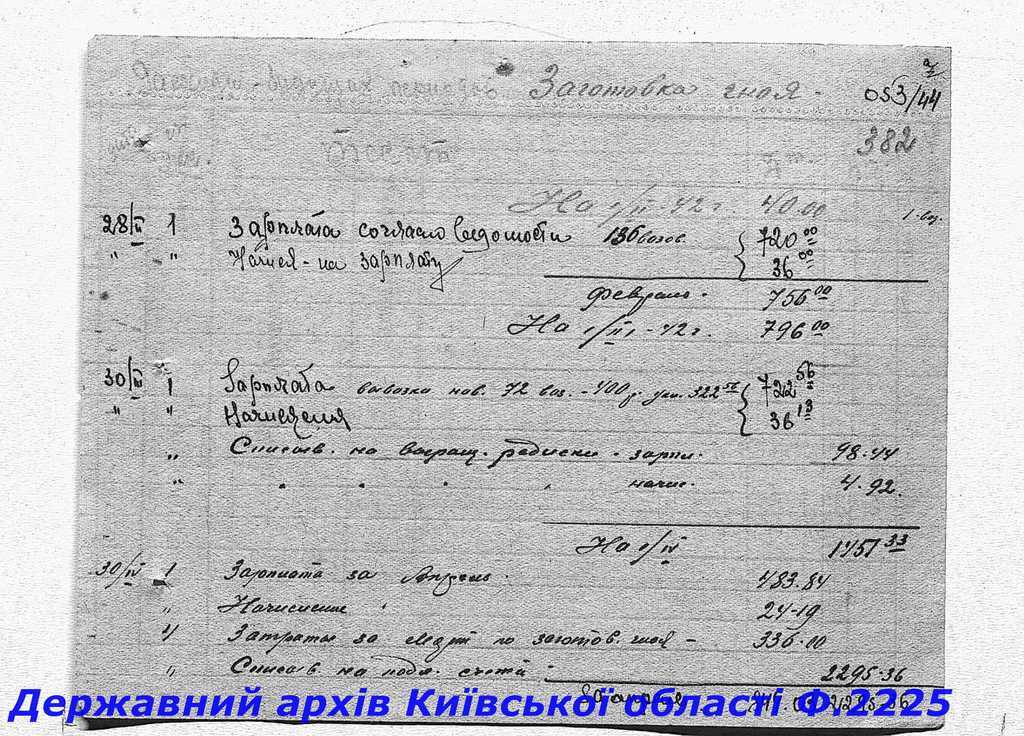 Заготовка гноя -
053/44
382
На 1/II-42 г. 40.00
28/II 1 Зарплата согласно ведомости 136 возов 720 00
" " Начисл - на зарплату 36 00
февраль. 756 00
На 1/III-42 г. 796 00
30/III 1 Зарплата вывозка нав. 72 воз. - 400 р. 322 56 722 56
" " Начисления 36 13
" Списыв. на выращ. редиски - зарпл. 98.44
" " " " " начис. 4.92.
На 1/IV 1451 33
30/IV 1 Зарплата за Апрель. 483.84
" Начисление " 24-19
4 Затраты за по заготов. гноя - 336.00
" Списыв. на подл. счета - 2295-36
За апрель
Державний архів Київської області Ф.2225